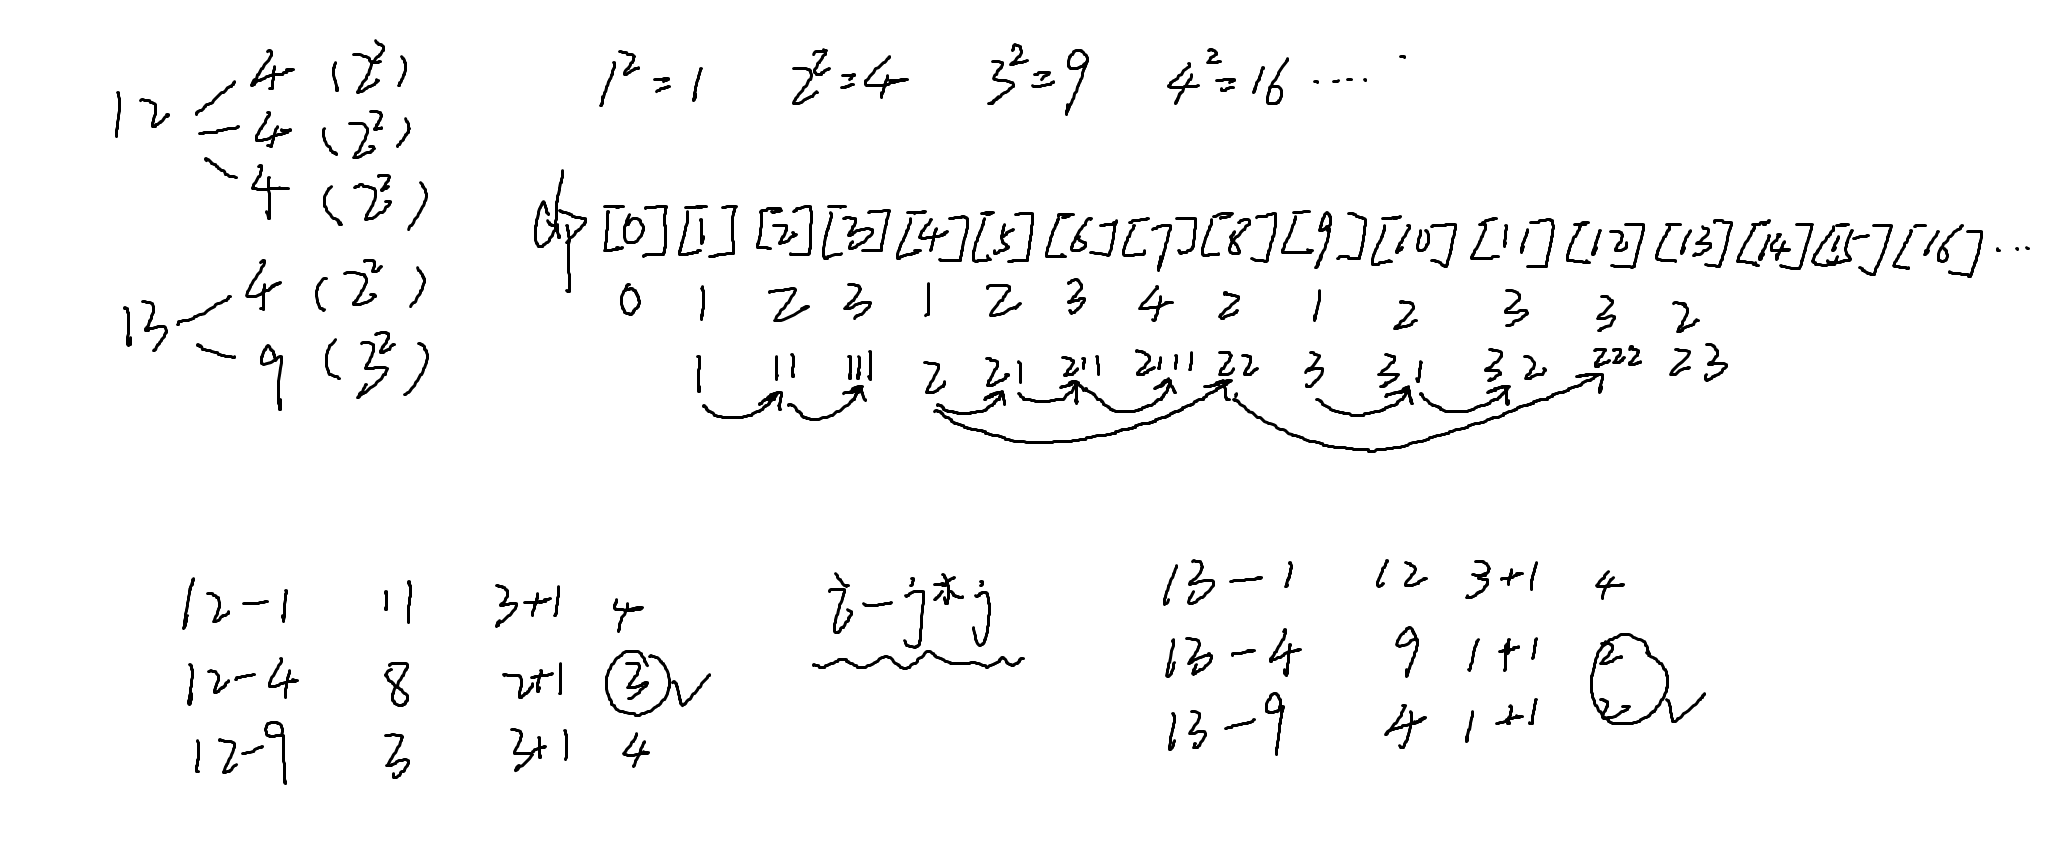 1²=1 2²=4 3²=9 4²=16 ·····
12
4 (2²)
4 (2²)
4 (2²)
13
4 (2²)
9 (3²)
dp [0] [1] [2] [3] [4] [5] [6] [7] [8] [9] [10] [11] [12] [13] [14] [15] [16] ...
0 1 2 3 1 2 3 4 2 1 2 3 3 2
1 11 111 2 21 211 2111 22 3 31 32 222 23
12-1 11 3+1 4
12-4 8 2+1 3 ✓
12-9 3 3+1 4
i-j*j
13-1 12 3+1 4
13-4 9 1+1 2
13-9 4 1+1 2 ✓